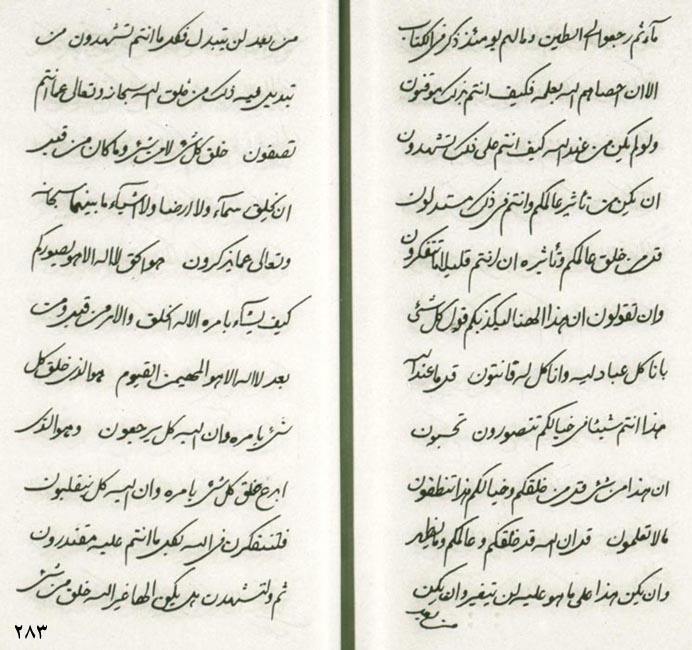 ماء ثم رجعوا الى الطين وما لهم يومئذ ذكر في الكتاب
الا ان احصاهم الله بعلمه فكيف انتم بذلك موقنون
ولو لم يكن من عند الله كيف انتم على ذلك تشهدون
ان يكن من تأثير عالمكم وانتم في ذلك مستدلون
قل من خلق عالمكم وتأثيره ان انتم قليلا ما تتفكرون
وان تقولون ان هذا الهنا ليكذبكم قول كل شئ
بانا كل عباد لله وانا كل له قانتون قل ما عند الله
هذا انتم شيئا في خيالكم تتصورون تحسبون
ان هذا من شئ قل من خلقكم وخيالكم هذا تنطقون
ما لا تعلمون قل ان الله قد خلقكم وعالمكم وما يظهر
وان يكن هذا على ما هو عليه لن يتغير وان يكن
من بعد
من بعد لن يتبدل فكل ما انتم تشهدون من
تبديل فيه ذلك من خلق الله سبحانه وتعالى عما انتم
تصفون خلق كل شئ لا من شئ وما كان من قبل
ان يخلق سماء ولا ارضا ولا اشياء ما بينهما سبحانه
وتعالى عما يذكرون هو الحق لا اله الا هو يصوركم
كيف يشاء بامره الا له الخلق والامر من قبل ومن
بعد لا اله الا هو المهيمن القيوم هو الذي خلق كل
شئ بامره وان اليه كل يرجعون وهو الذي
ابدع خلق كل شئ بامره وان اليه كل ينقلبون
فلتتفكرن في الله بكل ما انتم عليه مقتدرون
ثم ولتشهدن هل يكون الها غير الله خلق من شئ
٢٨٣